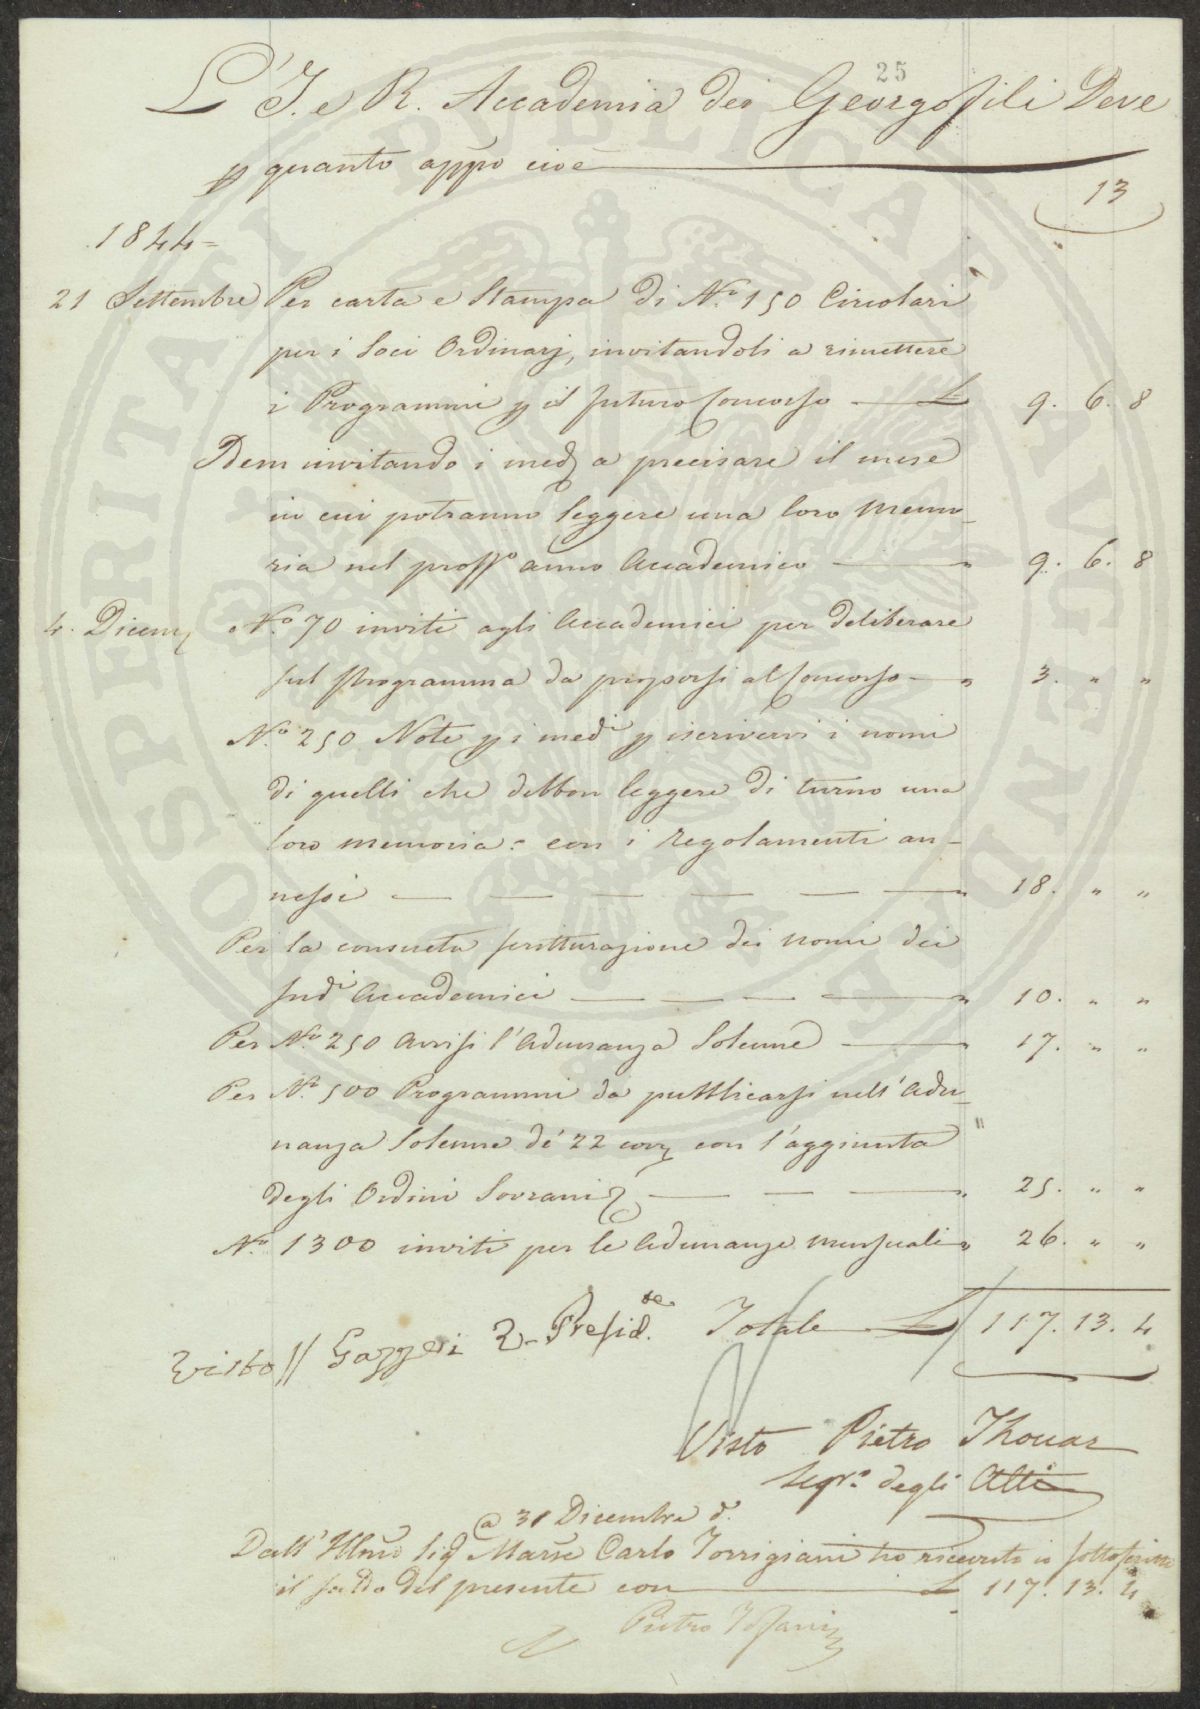 25
L'I. e R. Accademia dei Georgofili Deve
p quanto appo cioè
13
1844=
21 Settembre Per carta e Stampa di N.o 150 Circolari
per i Soci Ordinarj, invitandoli a rimettere
i Programmi p il futuro Concorso — £ 9. 6. 8
Idem invitando i med a precisare il mese
in cui potranno leggere una loro Memo-
ria nel pross.o anno Accademico — " 9. 6. 8
4. Dicem N.o 70 inviti agli Accademici per deliberare
sul Programma da proporsi al Concorso — " 3. " "
N.o 250 Note p i med.i p iscrivervi i nomi
di quelli che debbon leggere di turno una
loro memoria: con i regolamenti an-
nessi — — — — — " 18. " "
Per la consueta scritturazione dei nomi dei
sud.i Accademici — — — — " 10. " "
Per N.o 250 Avvisi l'Adunanza Solenne — " 17. " "
Per N.o 500 Programmi da pubblicarsi nell'Adu-
nanza Solenne de' 22 corr con l'aggiunta "
degli Ordini Sovrani — — — " 25. " "
N.o 1300 inviti per le Adunanze mensuali " 26. " "
Totale £ 117. 13. 4
Visto // Gazzeri V. Presid.te
Visto Pietro Thouar
Segr.o degli Atti
a 31 Dicembre d.o
Dall'Illmo Sig Marse Carlo Torrigiani ho ricevuto io sottoscritto
il saldo del presente con — £ 117. 13. 4
Pietro
PROSPERITATI PUBLICAE AUGENDAE